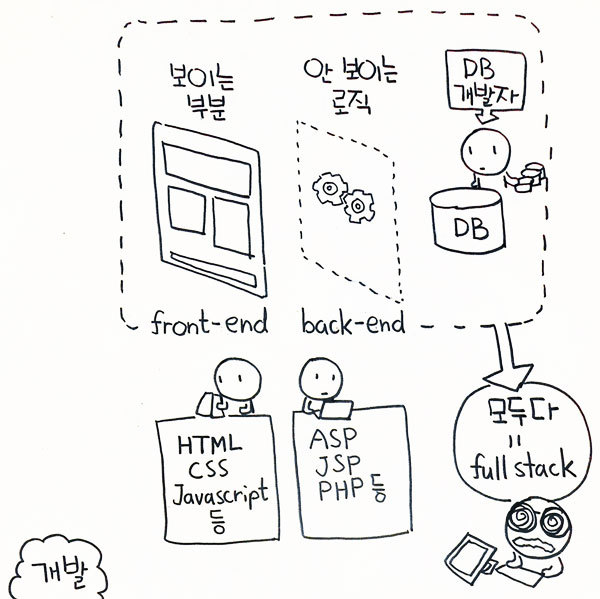 보이는
부분
안 보이는
로직
DB
개발자
DB
front-end
back-end
HTML
CSS
Javascript
등
ASP
JSP
PHP 등
모두다
=
full stack
개발